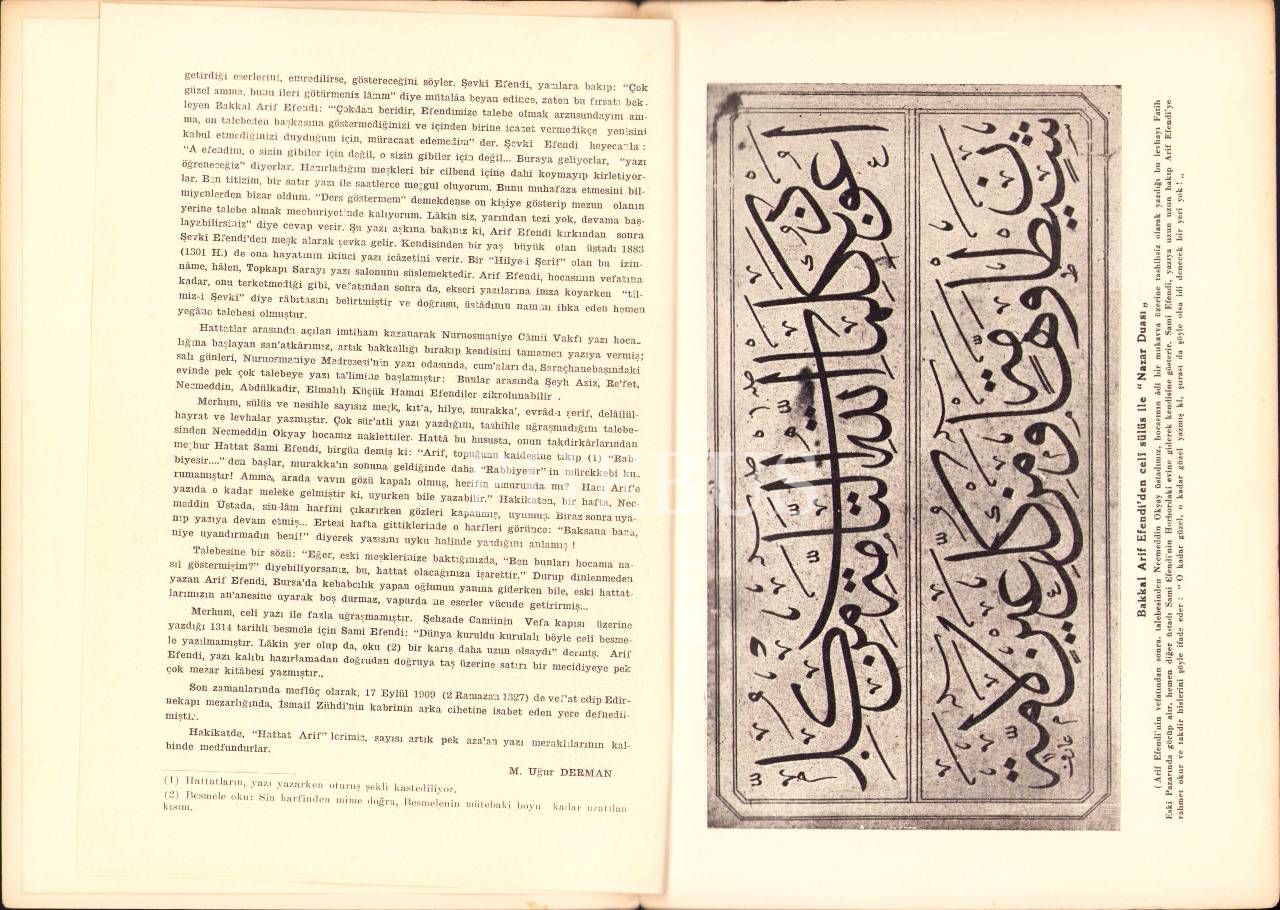 getirdiği eserlerini, emredilirse, göstereceğini söyler. Şevki Efendi, yazılara bakıp: "Çok
güzel amma, bunu ileri götürmeniz lâzım" diye mütalâa beyan edince, zaten bu fırsatı bek-
leyen Bakkal Arif Efendi: "Çokdan beridir, Efendimize talebe olmak arzusundayım am-
ma, on talebeden başkasına göstermediğinizi ve içinden birine icazet vermedikçe yenisini
kabul etmediğinizi duyduğum için, müracaat edemedim" der. Şevki Efendi heyecanla :
"A efendim, o sizin gibiler için değil, o sizin gibiler için değil... Buraya geliyorlar, "yazı
öğreneceğiz" diyorlar. Hazırladığım meşkleri bir cilbend içine dahi koymayıp kirletiyor-
lar. Ben titizim, bir satır yazı ile saatlerce meşgul oluyorum. Bunu muhafaza etmesini bil-
miyenlerden bizar oldum. "Ders göstermem" demekdense on kişiye gösterip mezun olanın
yerine talebe almak mecburiyetinde kalıyorum. Lâkin siz, yarından tezi yok, devama baş-
layabilirsiniz" diye cevap verir. Şu yazı aşkına bakınız ki, Arif Efendi kırkından sonra
Şevki Efendi'den meşk alarak şevka gelir. Kendisinden bir yaş büyük olan üstadı 1883
(1301 H.) de ona hayatının ikinci yazı icâzetini verir. Bir "Hilye-i Şerif" olan bu izin-
nâme, hâlen, Topkapı Sarayı yazı salonunu süslemektedir. Arif Efendi, hocasının vefatına
kadar, onu terketmediği gibi, vefatından sonra da, ekseri yazılarına imza koyarken "til-
miz-i Şevki" diye râbıtasını belirtmiştir ve doğrusu, üstâdının namını ibka eden hemen
yegâne talebesi olmuştur.
Hattatlar arasında açılan imtihanı kazanarak Nuruosmaniye Câmii Vakfı yazı hoca-
lığına başlayan san'atkârımız, artık bakkallığı bırakıp kendisini tamamen yazıya vermiş;
salı günleri, Nuruosmaniye Medresesi'nin yazı odasında, cum'aları da, Saraçhanebaşındaki
evinde pek çok talebeye yazı ta'limine başlamıştır: Bunlar arasında Şeyh Aziz, Re'fet,
Necmeddin, Abdülkadir, Elmalılı Küçük Hamdi Efendiler zikrolunabilir .
Merhum, sülüs ve nesihle sayısız meşk, kıt'a, hilye, murakka', evrâd-ı şerif, delâilül-
hayrat ve levhalar yazmıştır. Çok sür'atli yazı yazdığını, tashihle uğraşmadığını talebe-
sinden Necmeddin Okyay hocamız naklettiler. Hattâ bu hususta, onun takdirkârlarından
meşhur Hattat Sami Efendi, birgün demiş ki: "Arif, topuğunu kaidesine tıkıp (1) "Rab-
biyesir...." den başlar, murakka'ın sonuna geldiğinde daha "Rabbiyesir" in mürekkebi ku-
rumamıştır! Amma, arada vavın gözü kapalı olmuş, herifin umurunda mı? Hacı Arif'e
yazıda o kadar meleke gelmiştir ki, uyurken bile yazabilir." Hakikaten, bir hafta, Nec-
meddin Üstada, sin-lâm harfini çıkarırken gözleri kapanmış, uyumuş. Biraz sonra uya-
nıp yazıya devam etmiş... Ertesi hafta gittiklerinde o harfleri görünce: "Baksana bana,
niye uyandırmadın beni!" diyerek yazısını uyku halinde yazdığını anlamış !
Talebesine bir sözü: "Eğer, eski meşklerinize baktığınızda, "Ben bunları hocama na-
sıl göstermişim?" diyebiliyorsanız, bu, hattat olacağınıza işarettir." Durup dinlenmeden
yazan Arif Efendi, Bursa'da kebabcılık yapan oğlunun yanına giderken bile, eski hattat-
larımızın an'anesine uyarak boş durmaz, vapurda ne eserler vücude getirirmiş...
Merhum, celi yazı ile fazla uğraşmamıştır. Şehzade Camiinin Vefa kapısı üzerine
yazdığı 1314 tarihli besmele için Sami Efendi: "Dünya kuruldu kurulalı böyle celi besme-
le yazılmamıştır. Lâkin yer olup da, oku (2) bir karış daha uzun olsaydı" dermiş. Arif
Efendi, yazı kalıbı hazırlamadan doğrudan doğruya taş üzerine satırı bir mecidiyeye pek
çok mezar kitâbesi yazmıştır.,
Son zamanlarında meflûç olarak, 17 Eylül 1909 (2 Ramazan 1327) de vefat edip Edir-
nekapı mezarlığında, İsmail Zühdi'nin kabrinin arka cihetine isabet eden yere defnedil-
miştir.
Hakikatde, "Hattat Arif" lerimiz, sayısı artık pek azalan yazı meraklılarının kal-
binde medfundurlar.
M. Uğur DERMAN
(1) Hattatların, yazı yazarken oturuş şekli kastediliyor.
(2) Besmele oku: Sin harfinden mime doğru, Besmelenin mütebaki boyu kadar uzatılan
kısım.
أعوذ بكلمات الله التامة من كل
شيطان وهامة ومن كل عين لامة
Bakkal Arif Efendi'den celî sülüs ile " Nazar Duası „
( Arif Efendi'nin vefatından sonra, talebesinden Necmeddin Okyay üstadımız, hocasının âdi bir mukavva üzerine tashihsiz olarak yazdığı bu levhayı Fatih
Eski Pazarında görüp alır, hemen diğer üstadı Sami Efendi'nin Horhordaki evine giderek kendisine gösterir. Sami Efendi, yazıya uzun uzun bakıp Arif Efendi'ye
rahmet okur ve takdir hislerini şöyle ifade eder : " O kadar güzel, o kadar güzel yazmış ki, şurası da şöyle olsa idi denecek bir yeri yok ! „